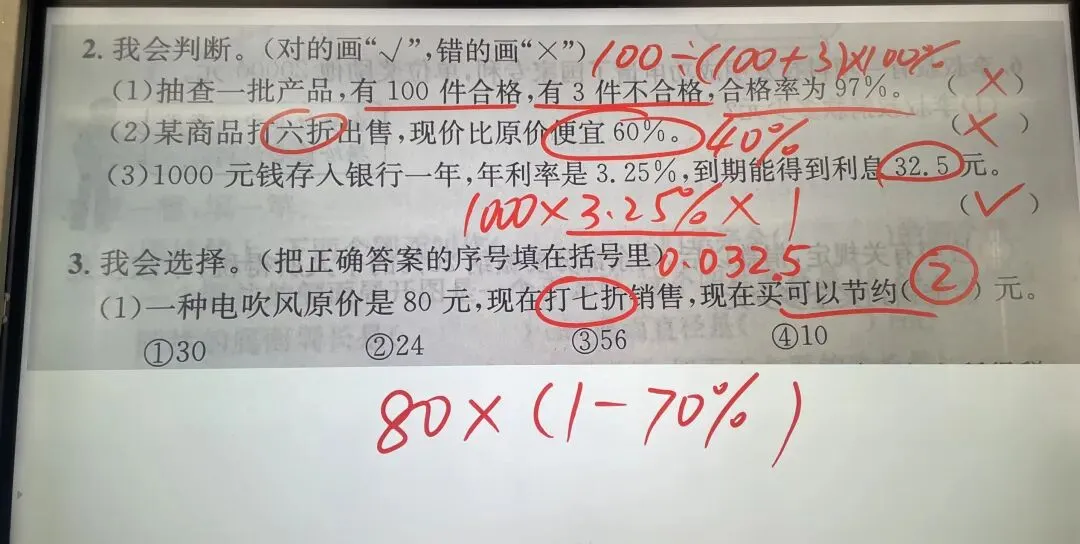 2. 我会判断。(对的画“√”,错的画“×”) 100÷(100+3)×100%
(1)抽查一批产品,有 100 件合格,有 3 件不合格,合格率为 97%。 (×)
(2)某商品打六折出售,现价比原价便宜 60%。 40% (×)
(3)1000 元钱存入银行一年,年利率是 3.25%,到期能得到利息 32.5 元。
1000×3.25%×1 (√)
3. 我会选择。(把正确答案的序号填在括号里) 0.0325
(1)一种电吹风原价是 80 元,现在打七折销售,现在买可以节约(②)元。
①30 ②24 ③56 ④10
80×(1-70%)